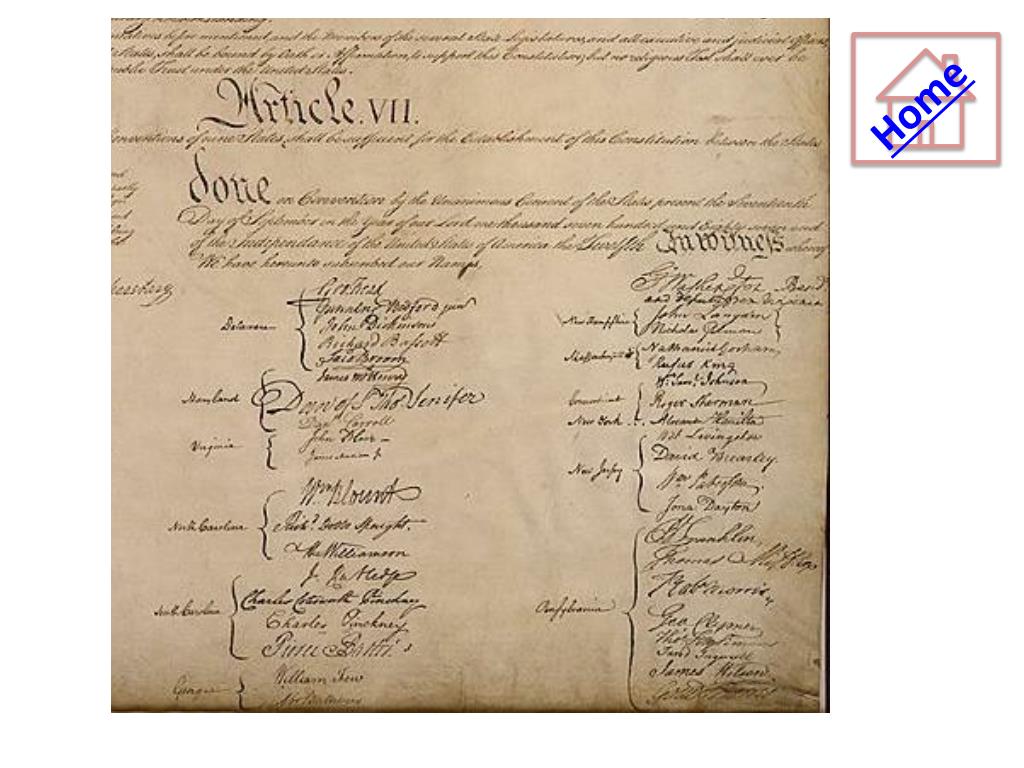 tatives before mentioned, and the Members of the several State Legislatures, and all executive and judicial Officers,
States, shall be bound by Oath or Affirmation, to support this Constitution; but no religious Test shall ever be
public Trust under the United States.
Article. VII.
Conventions of nine States, shall be sufficient for the Establishment of this Constitution between the States
done in Convention by the Unanimous Consent of the States present the Seventeenth
Day of September in the Year of our Lord one thousand seven hundred and Eighty seven and
of the Independance of the United States of America the Twelfth In Witness whereof
We have hereunto subscribed our Names,
Delaware
Geo: Read
Gunning Bedford jun
John Dickinson
Richard Bassett
Jaco: Broom
Maryland
James McHenry
Dan of St Thos. Jenifer
Danl Carroll
Virginia
John Blair
James Madison Jr
North Carolina
Wm Blount
Richd. Dobbs Spaight.
Hu Williamson
South Carolina
J. Rutledge
Charles Cotesworth Pinckney
Charles Pinckney
Pierce Butler
Georgia
William Few
Abr Baldwin
Go. Washington Presidt
and deputy from Virginia
New Hampshire
John Langdon
Nicholas Gilman
Massachusetts
Nathaniel Gorham
Rufus King
Connecticut
Wm. Saml. Johnson
Roger Sherman
New York
Alexander Hamilton
New Jersey
Wil: Livingston
David Brearley
Wm Paterson
Jona: Dayton
Pensylvania
B Franklin
Thomas Mifflin
Robt Morris
Geo. Clymer
Thos. FitzSimons
Jared Ingersoll
James Wilson
Gouv Morris
Home